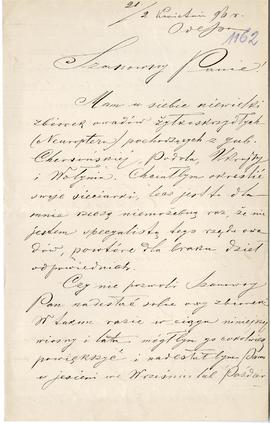 21/2 Kwietnia 90 r.
Odessa
1162
Szanowny Panie!
Mam u siebie niewielki
zbiorek owadów żyłkoskrzydłych
(Neuroptera) pochodzących z gub.
Chersońskiej, Podola, Ukrajny
i Wołynia. Chciałbym określić
swoje sieciarki, lecz jest to dla
mnie rzeczą niemożebną raz, że nie
jestem specyalistą tego rzędu owa-
dów, powtóre dla braku dzieł
odpowiednich.
Czy nie pozwoli Szanowny
Pan nadesłać sobie ów zbiorek.
W takim razie w ciągu niniejszej
wiosny i lata mógłbym go cokolwiek
powiększyć i nadesłałbym Panu
w jesieni we Wrześniu lub Paździer